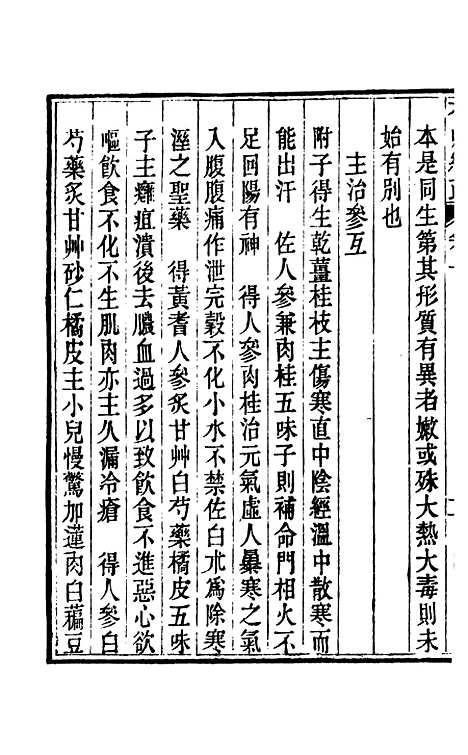 本是同生第其形質有異者嫩或殊大熱大毒則未
始有別也
主治參互
附子得生乾薑桂枝主傷寒直中陰經溫中散寒而
能出汗　佐人參兼肉桂五味子則補命門相火不
足回陽有神　得人參肉桂治元氣虛人暴寒之氣
入腹腹痛作泄完穀不化小水不禁佐白朮爲除寒
溼之聖藥　得黃耆人參炙甘艸白芍藥橘皮五味
子主癰疽潰後去膿血過多以致飲食不進惡心欲
嘔飲食不化不生肌肉亦主久漏冷瘡　得人參白
芍藥炙甘艸砂仁橘皮主小兒慢驚加蓮肉白藊豆